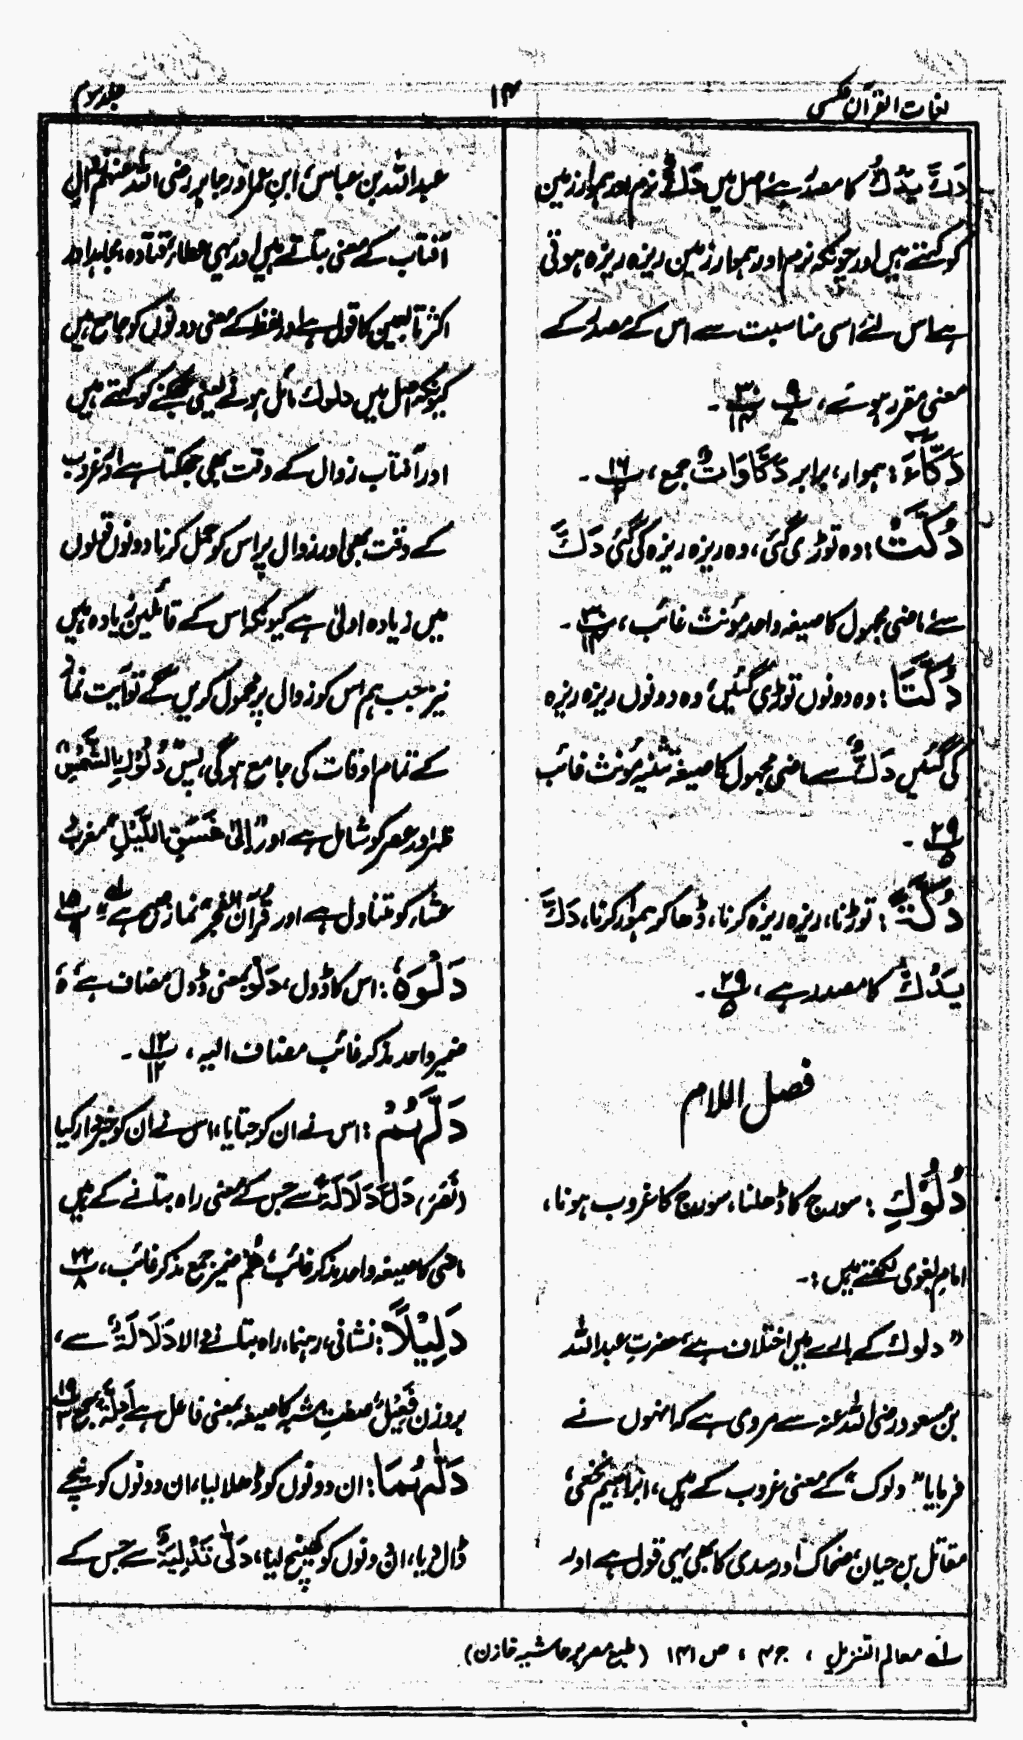 لغات القرآن عکسی
۱۴
جلد سوم
دَكَّ يَدُكُّ کا مصدر ہے، اصل میں دَكٌّ نرم اور ہموار زمین
کو کہتے ہیں اور چونکہ نرم اور ہموار زمین ریزہ ریزہ ہوتی
ہے اس لئے اسی مناسبت سے اس کے مصدر کے
معنی مقرر ہوئے،
دَكَّاءَ: ہموار، برابر دَكَّاوَاتٌ جمع، ۱۶
دُكَّتْ: وہ توڑی گئی، وہ ریزہ ریزہ کی گئی دَكٌّ
سے ماضی مجہول کا صیغہ واحد مؤنث غائب،
دُكَّتَا: وہ دونوں توڑی گئیں، وہ دونوں ریزہ ریزہ
کی گئیں دَكٌّ سے ماضی مجہول کا صیغہ تثنیہ مؤنث غائب
۲۹ ۵
دَكَّةً: توڑنا، ریزہ ریزہ کرنا، ڈھا کر ہموار کرنا، دَكَّ
يَدُكُّ کا مصدر ہے، ۲۹ ۵
فصل اللام
دُلُوْكِ: سورج کا ڈھلنا، سورج کا غروب ہونا،
امام بغوی لکھتے ہیں:-
”دلوک کے بارے میں اختلاف ہے، حضرت عبداللہ
بن مسعود رضی اللہ عنہ سے مروی ہے کہ انہوں نے
فرمایا ”دلوک“ کے معنی غروب کے ہیں، ابراہیم نخعی،
مقاتل بن حیان، ضحاک اور سدی کا بھی یہی قول ہے اور
عبداللہ بن عباس، ابن عمر اور جابر رضی اللہ عنہم زوال
آفتاب کے معنی بتاتے ہیں اور یہی عطاء، قتادہ، مجاہد اور
اکثر تابعین کا قول ہے اور لفظ کے معنی دونوں کو جامع ہیں
کیونکہ اصل میں دلوک مائل ہونے یعنی جھکنے کو کہتے ہیں
اور آفتاب زوال کے وقت بھی جھکتا ہے اور غروب
کے وقت بھی اور زوال پر اس کو حمل کرنا دونوں قولوں
میں زیادہ اولیٰ ہے کیونکہ اس کے قائلین زیادہ ہیں
نیز جب ہم اس کو زوال پر محمول کریں گے تو آیت نماز
کے تمام اوقات کی جامع ہوگی، پس ”دُلُوْكِ الشَّمْسِ“
ظہر اور عصر کو شامل ہے اور ”اِلىٰ غَسَقِ اللَّيْلِ“ مغرب
عشاء کو متناول ہے اور ”قُرْاٰنَ الْفَجْرِ“ نماز صبح ہے“ ۱۵
دَلْوَهٗ: اس کا ڈول، دَلْو بمعنی ڈول مضاف ہے، ہٗ
ضمیر واحد مذکر غائب مضاف الیہ، ۱۲ ۱۲
دَلَّهُمْ: اس نے ان کو جتایا، اس نے ان کو خبردار کیا
(نَصَرَ) دَلَّ دَلَالَةٌ سے جس کے معنی راہ بتانے کے ہیں
ماضی کا صیغہ واحد مذکر غائب، هُمْ ضمیر جمع مذکر غائب، ۲۲ ۸
دَلِيْلًا: نشانی، رہنما، راہ بتانے والا دَلَالَةٌ سے،
بروزن فَعِيْلٌ صفت مشبہ کا صیغہ بمعنی فاعل ہے اَدِلَّةٌ جمع ۱۹
دَلّٰهُمَا: ان دونوں کو ڈھلا لیا، ان دونوں کو نیچے
ڈال دیا، ان دونوں کو کھینچ لیا، دَلّٰى تَدْلِيَةٌ سے جس کے
لہ معالم التنزیل، ج ۴، ص ۱۴۱ (طبع مصر بر حاشیہ خازن)